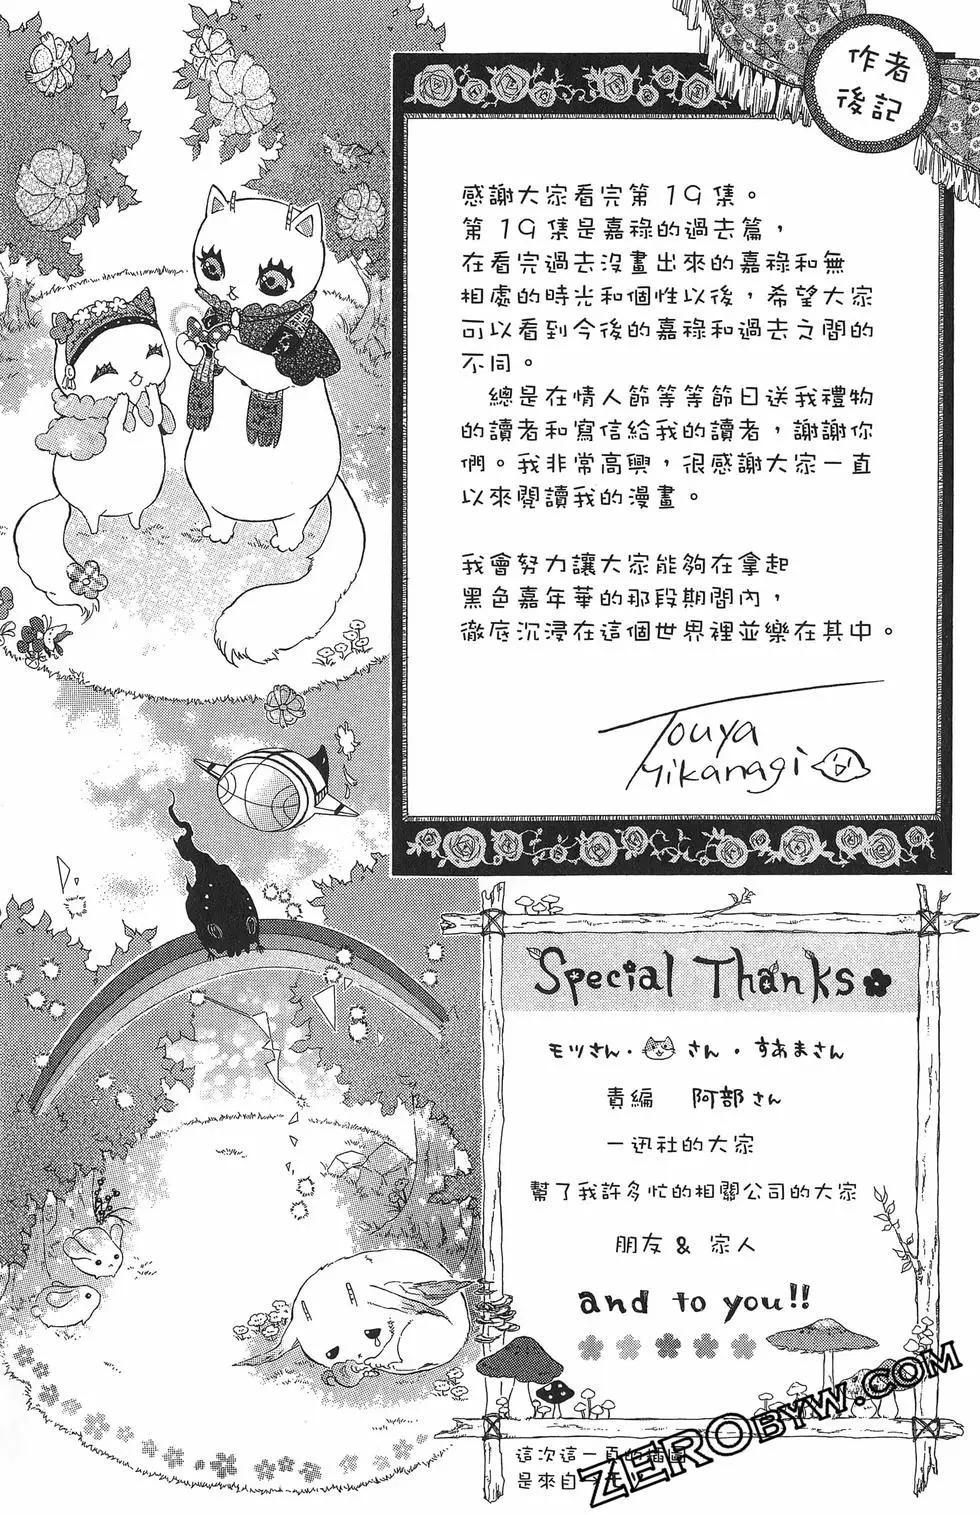 作者
後記
感謝大家看完第19集。
第19集是嘉祿的過去篇，
在看完過去沒畫出來的嘉祿和無
相處的時光和個性以後，希望大家
可以看到今後的嘉祿和過去之間的
不同。
總是在情人節等等節日送我禮物
的讀者和寫信給我的讀者，謝謝你
們。我非常高興，很感謝大家一直
以來閱讀我的漫畫。
我會努力讓大家能夠在拿起
黑色嘉年華的那段期間內，
徹底沉浸在這個世界裡並樂在其中。
Touya
Mikanagi
Special Thanks
モツさん・さん・すあまさん
責編 阿部さん
一迅社的大家
幫了我許多忙的相關公司的大家
朋友 & 家人
and to you!!
這次這一頁的插圖
是來自
ZEROBYW.COM